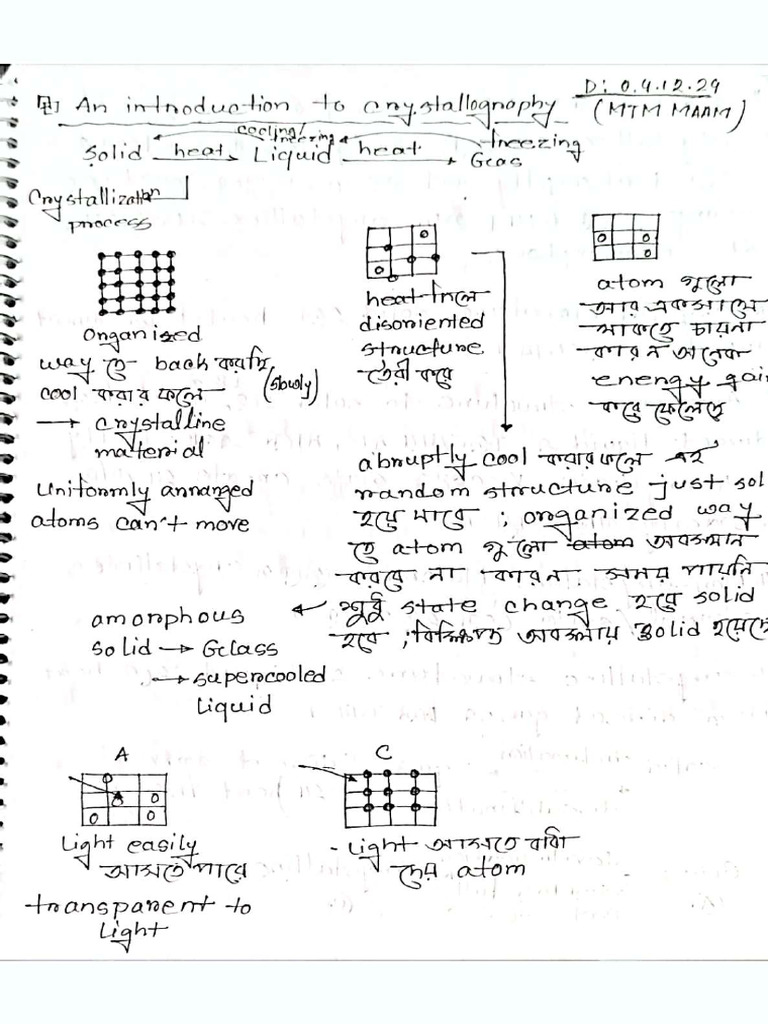 D: 04.12.24
An introduction to crystallography (MTM MAAM)
cooling/freezing freezing
Solid heat Liquid heat Gas
Crystallization
process
organized
way তে back করছি
cool করার ফলে (slowly)
→ crystalline
material
Uniformly arranged
atoms can't move
heat দিলে
disoriented
structure
তৈরী করে
atom গুলো
আর একসাথে
থাকতে চায়না
কারন অনেক
energy gai
করে ফেলেছে
abruptly cool করার ফলে এই
random structure just sol
হয়ে যাবে : organized way
তে atom গুলো atom অবস্থান
করবে না কারন সময় পায়নি
শুধু state change হয়ে solid
হবে ; বিক্ষিপ্ত অবস্থায় solid হয়েছে
amorphous
solid → Glass
→ supercooled
liquid
A
Light easily
আসতে পারে
transparent to
Light
C
- Light আসতে বাধা
দেয় atom